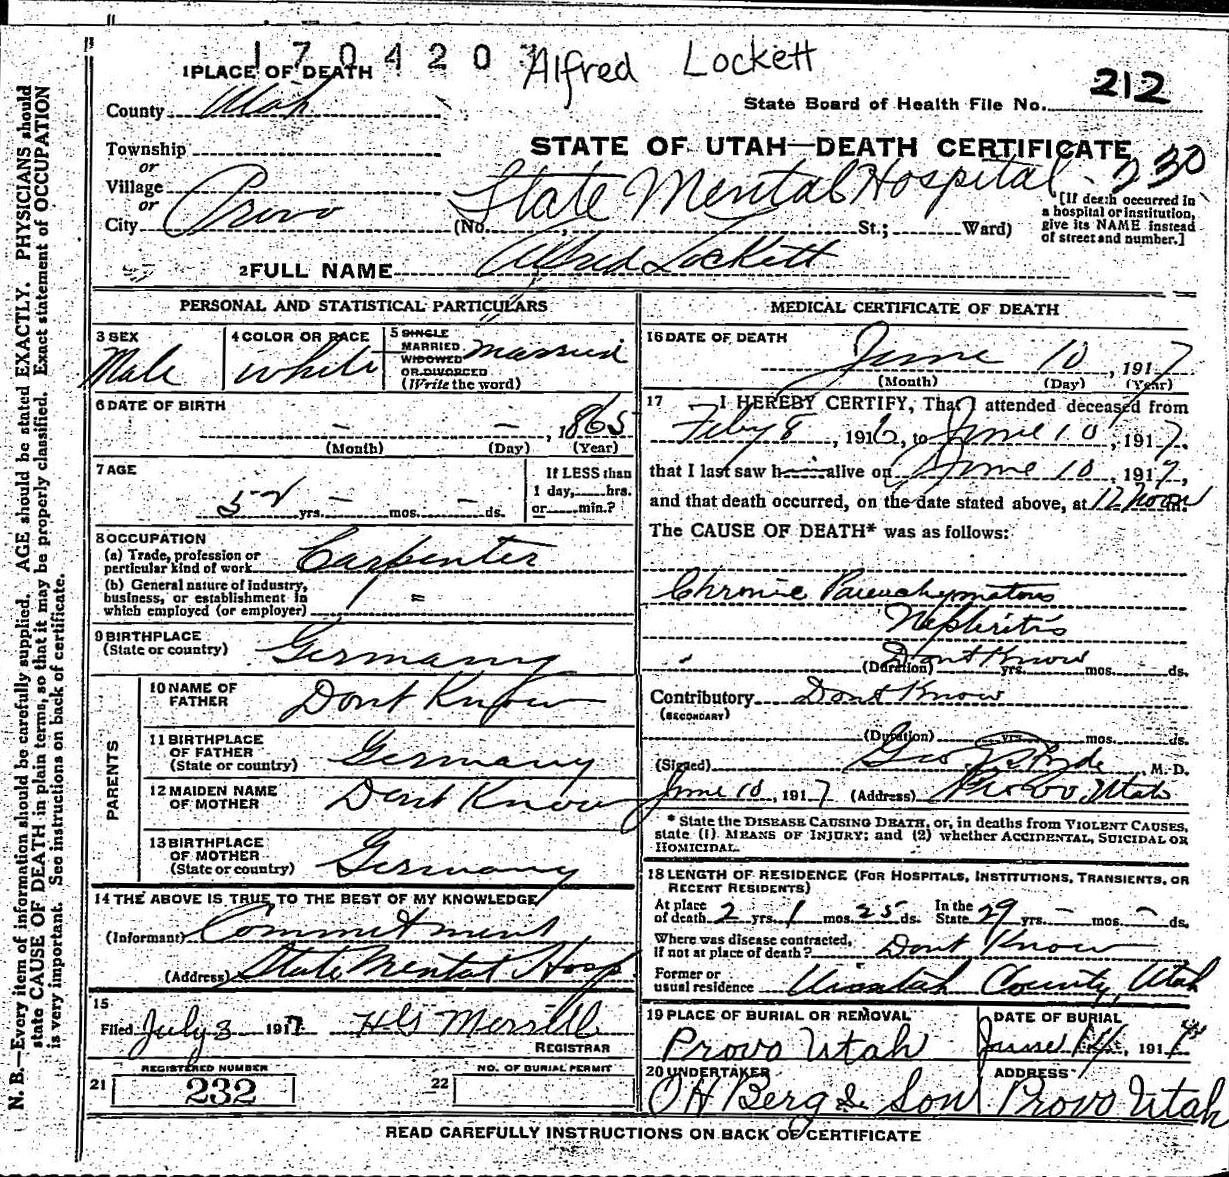 170420
Alfred Lockett
1 PLACE OF DEATH
County Utah
State Board of Health File No. 212
Township
or
Village
or
City Provo
STATE OF UTAH—DEATH CERTIFICATE
State Mental Hospital 230
(No. St.; Ward)
[If death occurred in
a hospital or institution,
give its NAME instead
of street and number.]
2 FULL NAME Alfred Lockett
PERSONAL AND STATISTICAL PARTICULARS
3 SEX
Male
4 COLOR OR RACE
white
5 SINGLE
MARRIED
WIDOWED
OR DIVORCED
(Write the word)
married
6 DATE OF BIRTH
— — , 1865
(Month) (Day) (Year)
7 AGE
52 yrs. — mos. — ds.
If LESS than
1 day, hrs.
or min.?
8 OCCUPATION
(a) Trade, profession or
particular kind of work Carpenter
(b) General nature of industry,
business, or establishment in
which employed (or employer)
9 BIRTHPLACE
(State or country) Germany
PARENTS
10 NAME OF
FATHER Dont Know
11 BIRTHPLACE
OF FATHER
(State or country) Germany
12 MAIDEN NAME
OF MOTHER Dont Know
13 BIRTHPLACE
OF MOTHER
(State or country) Germany
14 THE ABOVE IS TRUE TO THE BEST OF MY KNOWLEDGE
(Informant) Commitment
(Address) State Mental Hosp.
15
Filed July 3 1917 H G Merrill
REGISTRAR
REGISTERED NUMBER
21 232
NO. OF BURIAL PERMIT
22
MEDICAL CERTIFICATE OF DEATH
16 DATE OF DEATH
June 10, 1917
(Month) (Day) (Year)
17 I HEREBY CERTIFY, That I attended deceased from
Feby 8, 1916, to June 10, 1917.
that I last saw h alive on June 10, 1917,
and that death occurred, on the date stated above, at 12 noon m.
The CAUSE OF DEATH* was as follows:
Chronic Parenchymatous
Nephritis
(Duration) Dont Know yrs. mos. ds.
Contributory Dont Know
(SECONDARY)
(Duration) yrs. mos. ds.
(Signed) Geo , M. D.
June 10, 1917 (Address) Provo Utah
* State the DISEASE CAUSING DEATH, or, in deaths from VIOLENT CAUSES,
state (1) MEANS OF INJURY; and (2) whether ACCIDENTAL, SUICIDAL OR
HOMICIDAL.
18 LENGTH OF RESIDENCE (FOR HOSPITALS, INSTITUTIONS, TRANSIENTS, OR
RECENT RESIDENTS)
At place
of death 2 yrs. 1 mos. 25 ds. In the
State 29 yrs. — mos. — ds.
Where was disease contracted,
if not at place of death? Dont Know
Former or
usual residence Uintah County, Utah
19 PLACE OF BURIAL OR REMOVAL
Provo Utah
DATE OF BURIAL
June 14, 191
20 UNDERTAKER
O H Berg & Son
ADDRESS
Provo Utah
READ CAREFULLY INSTRUCTIONS ON BACK OF CERTIFICATE
N. B.—Every item of information should be carefully supplied. AGE should be stated EXACTLY. PHYSICIANS should
state CAUSE OF DEATH in plain terms, so that it may be properly classified. Exact statement of OCCUPATION
is very important. See instructions on back of certificate.